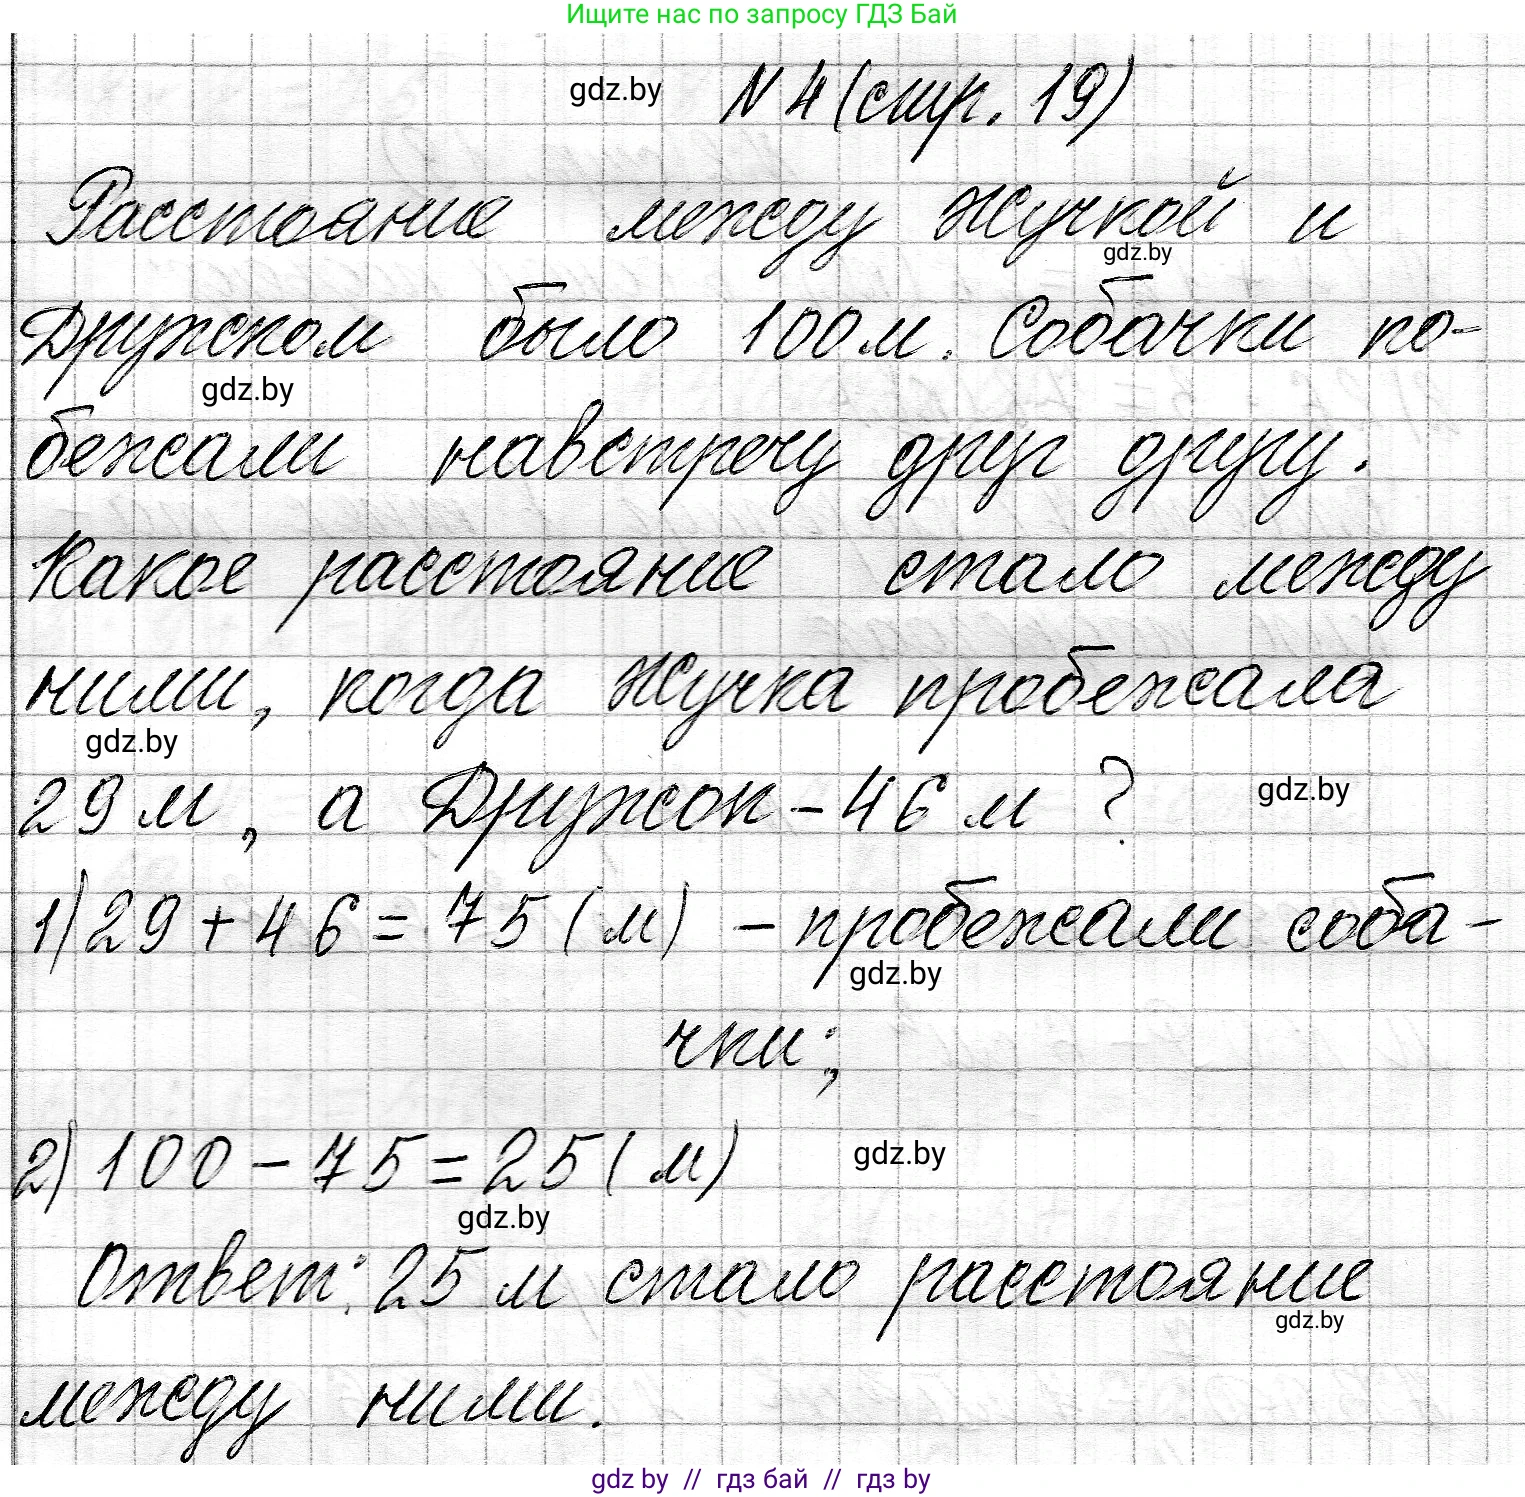 Ищите нас по запросу ГДЗ Бай
gdz.by
N 4 (стр. 19)
Расстояние между Жучкой и
gdz.by
Дружком было 100 м. Собачки по-
gdz.by
бежали навстречу друг другу.
Какое расстояние стало между
ними, когда Жучка пробежала
gdz.by
29 м, а Дружок - 46 м ?
gdz.by
1) 29 + 46 = 75 (м) - пробежали соба-
gdz.by
чки;
2) 100 - 75 = 25 (м)
gdz.by
gdz.by
Ответ: 25 м стало расстояние
gdz.by
между ними.
gdz by // гдз бай // гдз by